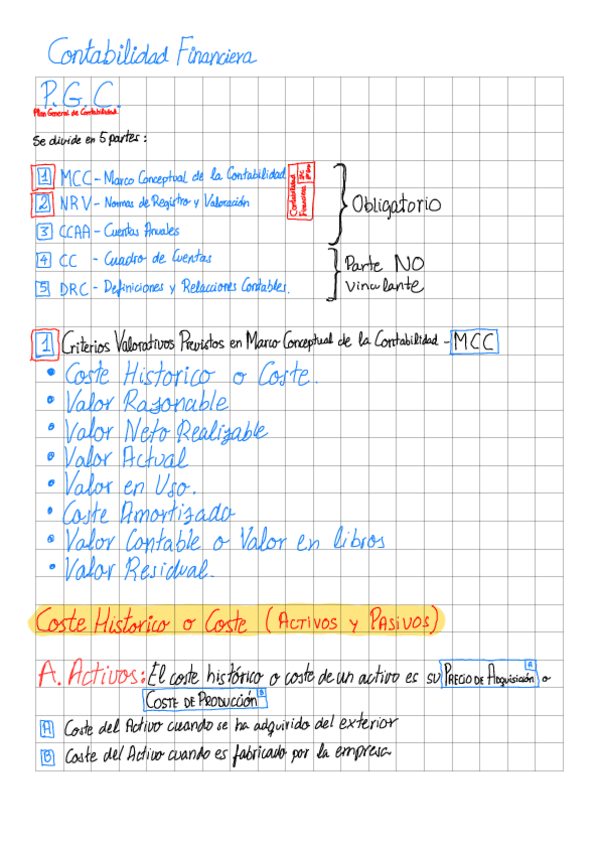 Contabilidad Financiera
P.G.C.
Plan General de Contabilidad.
Se divide en 5 partes:
1 MCC - Marco Conceptual de la Contabilidad
2 NRV - Normas de Registro y Valoración
Contabilidad Financiera
3 CCAA - Cuentas Anuales
Obligatorio
4 CC - Cuadro de Cuentas
5 DRC - Definiciones y Relaciones Contables.
Parte NO
vinculante
1 Criterios Valorativos Previstos en Marco Conceptual de la Contabilidad - MCC
• Coste Historico o Coste.
• Valor Razonable
• Valor Neto Realizable
• Valor Actual
• Valor en Uso.
• Coste Amortizado
• Valor Contable o Valor en libros
• Valor Residual.
Coste Historico o Coste (Activos y Pasivos)
A. Activos: El coste histórico o coste de un activo es su Precio de Adquisición A o
Coste de Producción B
A Coste del Activo cuando se ha adquirido del exterior
B Coste del Activo cuando es fabricado por la empresa